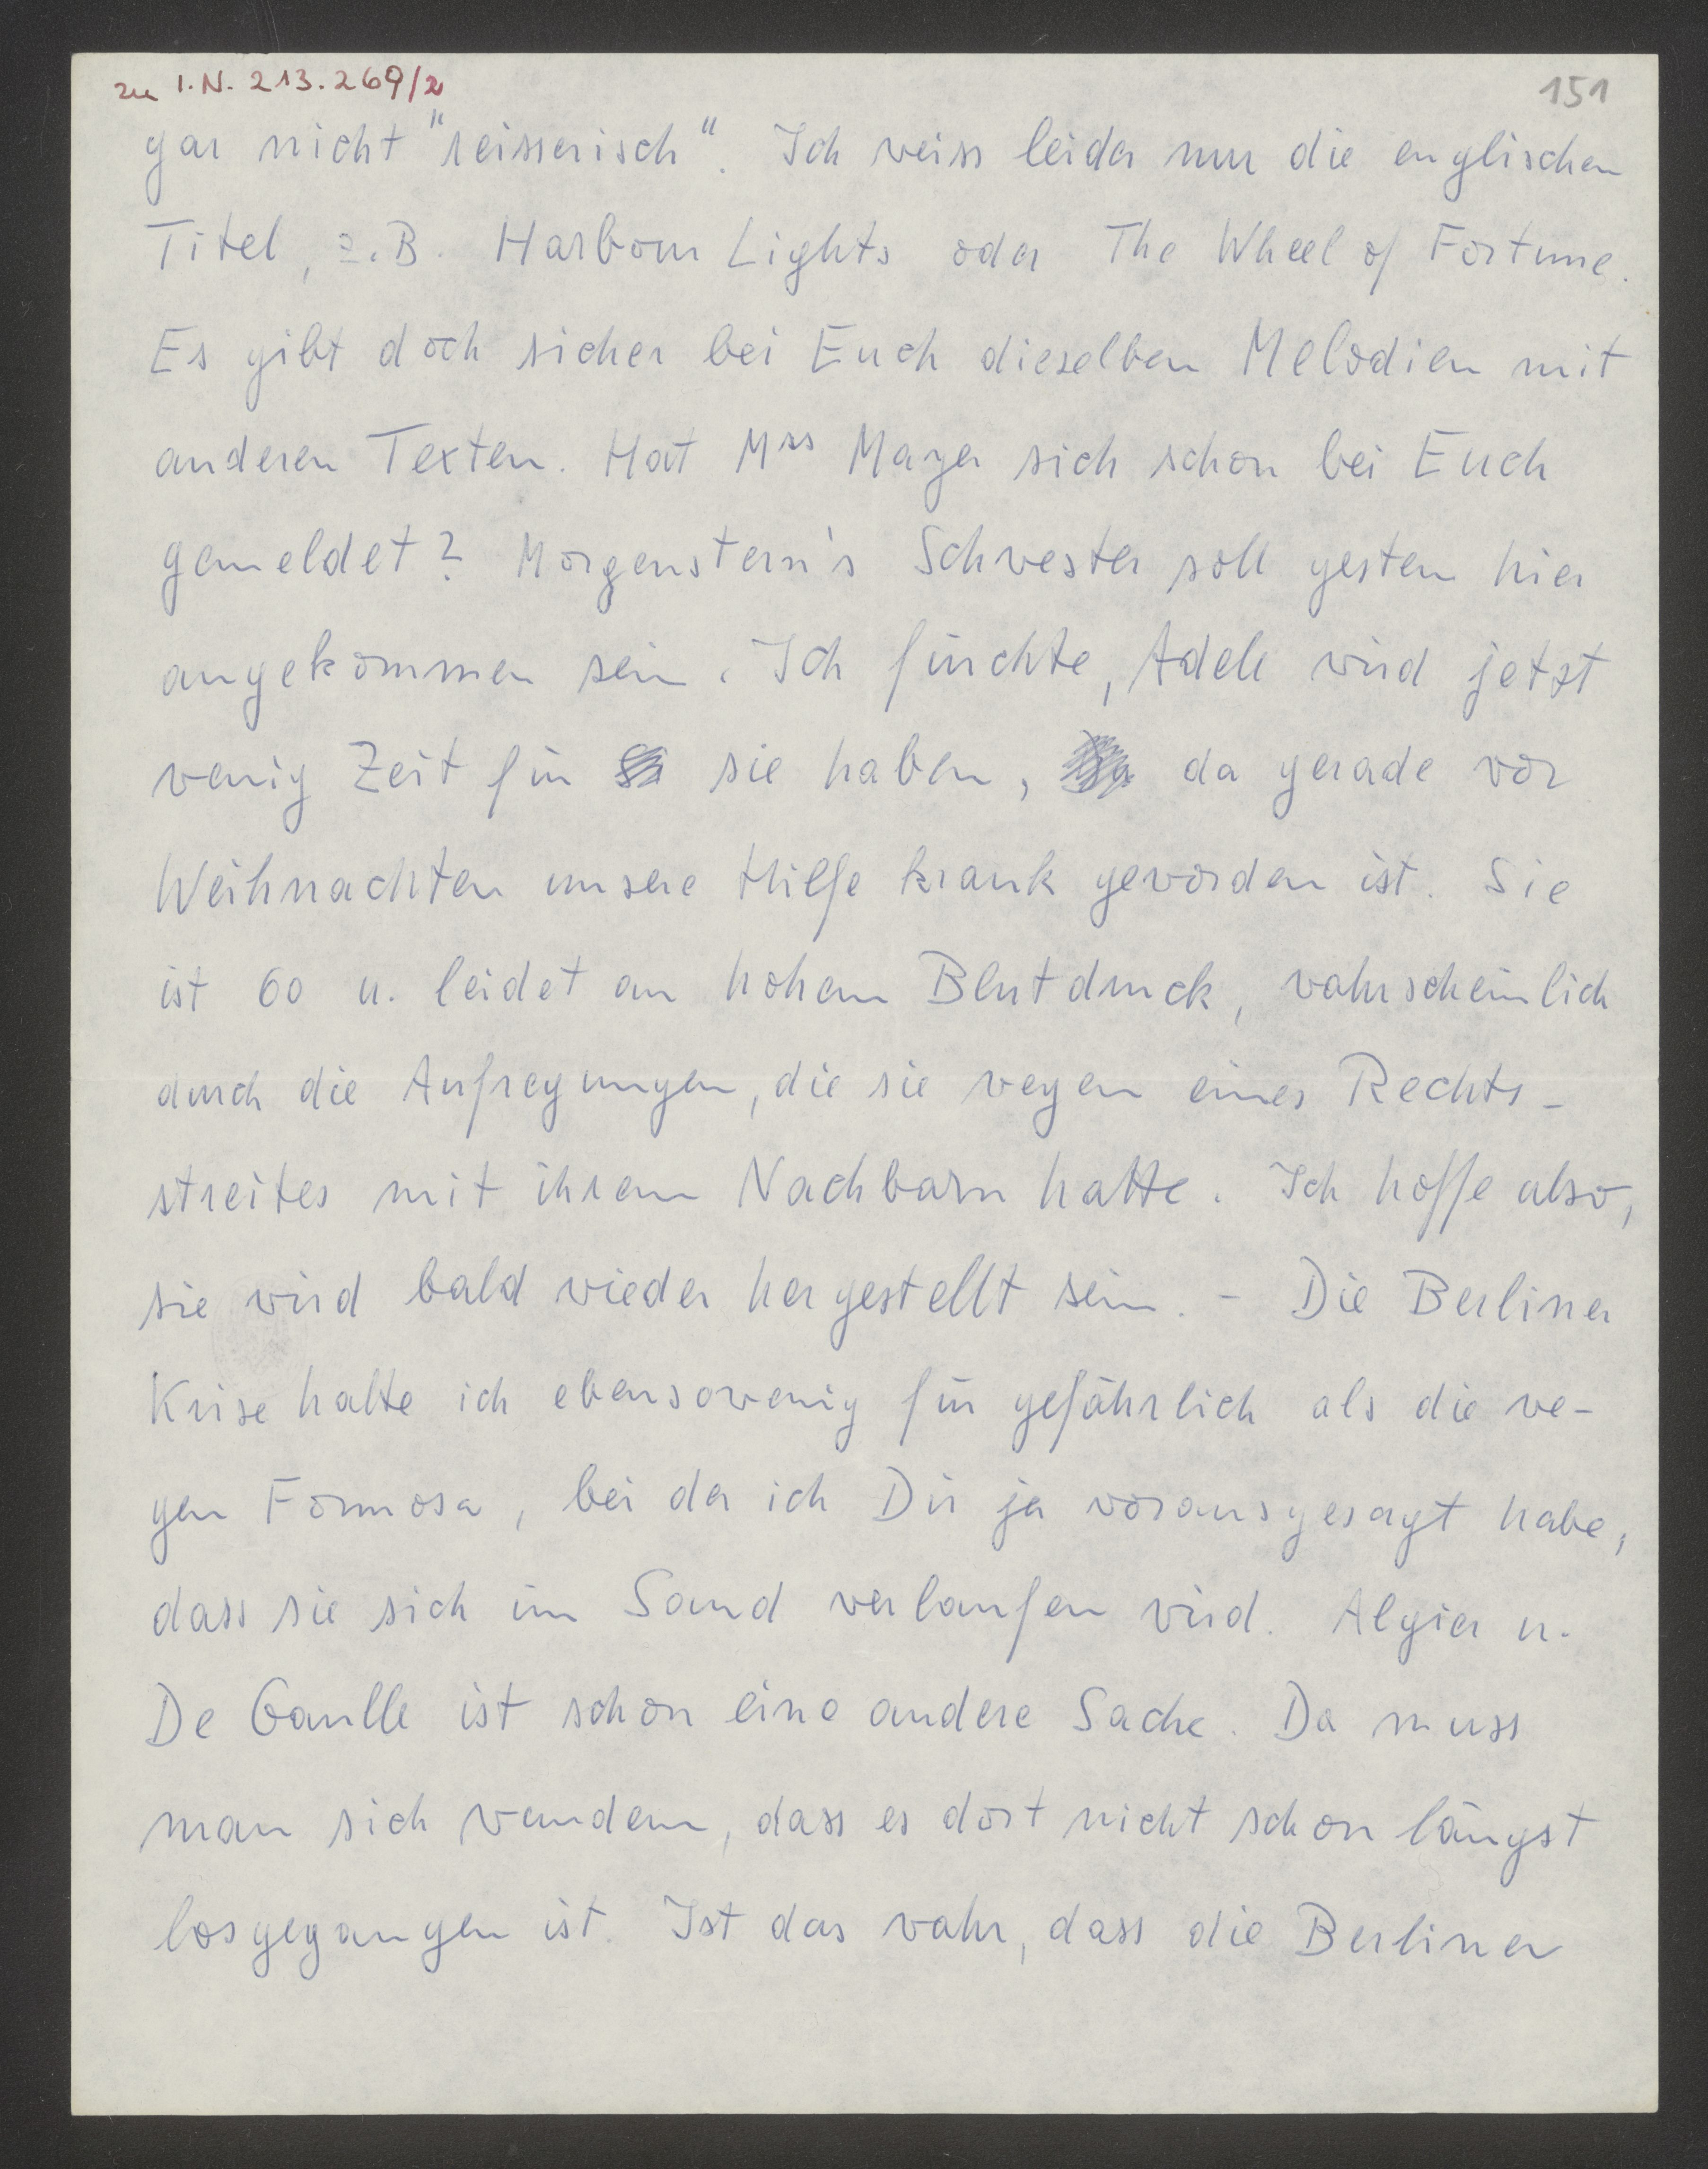 zu I.N. 213.269/2
151
gar nicht "reisserisch". Ich weiss leider nur die englischen
Titel, z.B. Harbour Lights oder The Wheel of Fortune.
Es gibt doch sicher bei Euch dieselben Melodien mit
anderen Texten. Hat Mrs Mayer sich schon bei Euch
gemeldet? Morgenstern's Schwester soll gestern hier
angekommen sein. Ich fürchte, Adele wird jetzt
wenig Zeit für sie haben, da gerade vor
Weihnachten unsere Hilfe krank geworden ist. Sie
ist 60 u. leidet an hohem Blutdruck, wahrscheinlich
durch die Aufregungen, die sie wegen eines Rechts-
streites mit ihrem Nachbarn hatte. Ich hoffe also,
sie wird bald wieder hergestellt sein. - Die Berliner
Krise halte ich ebensowenig für gefährlich als die we-
gen Formosa, bei der ich Dir ja vorausgesagt habe,
dass sie sich im Sand verlaufen wird. Algier u.
De Gaulle ist schon eine andere Sache. Da muss
man sich wundern, dass es dort nicht schon längst
losgegangen ist. Ist das wahr, dass die Berliner